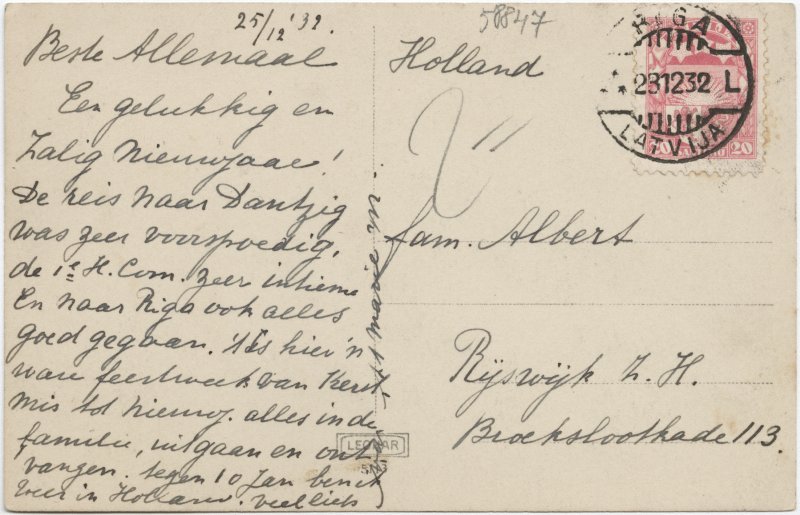 25/12 '32.
58847
Beste Allemaal
Een gelukkig en
Zalig Nieuwjaar!
De reis naar Dantzig
was zeer voorspoedig,
de 1e H. Com. zeer intiem
En naar Riga ook alles
goed gegaan. 't Is hier 'n
ware feestweek van Kerst
mis tot nieuwj. alles in de
familie, uitgaan en ont
vangen. tegen 10 Jan ben ik
weer in Holland. veel liefs
Marie
Holland
fam. Albert
Rijswijk Z. H.
Broekslootkade 113.
RIGA
281232 L
LATVIJA
20 20
LEONAR